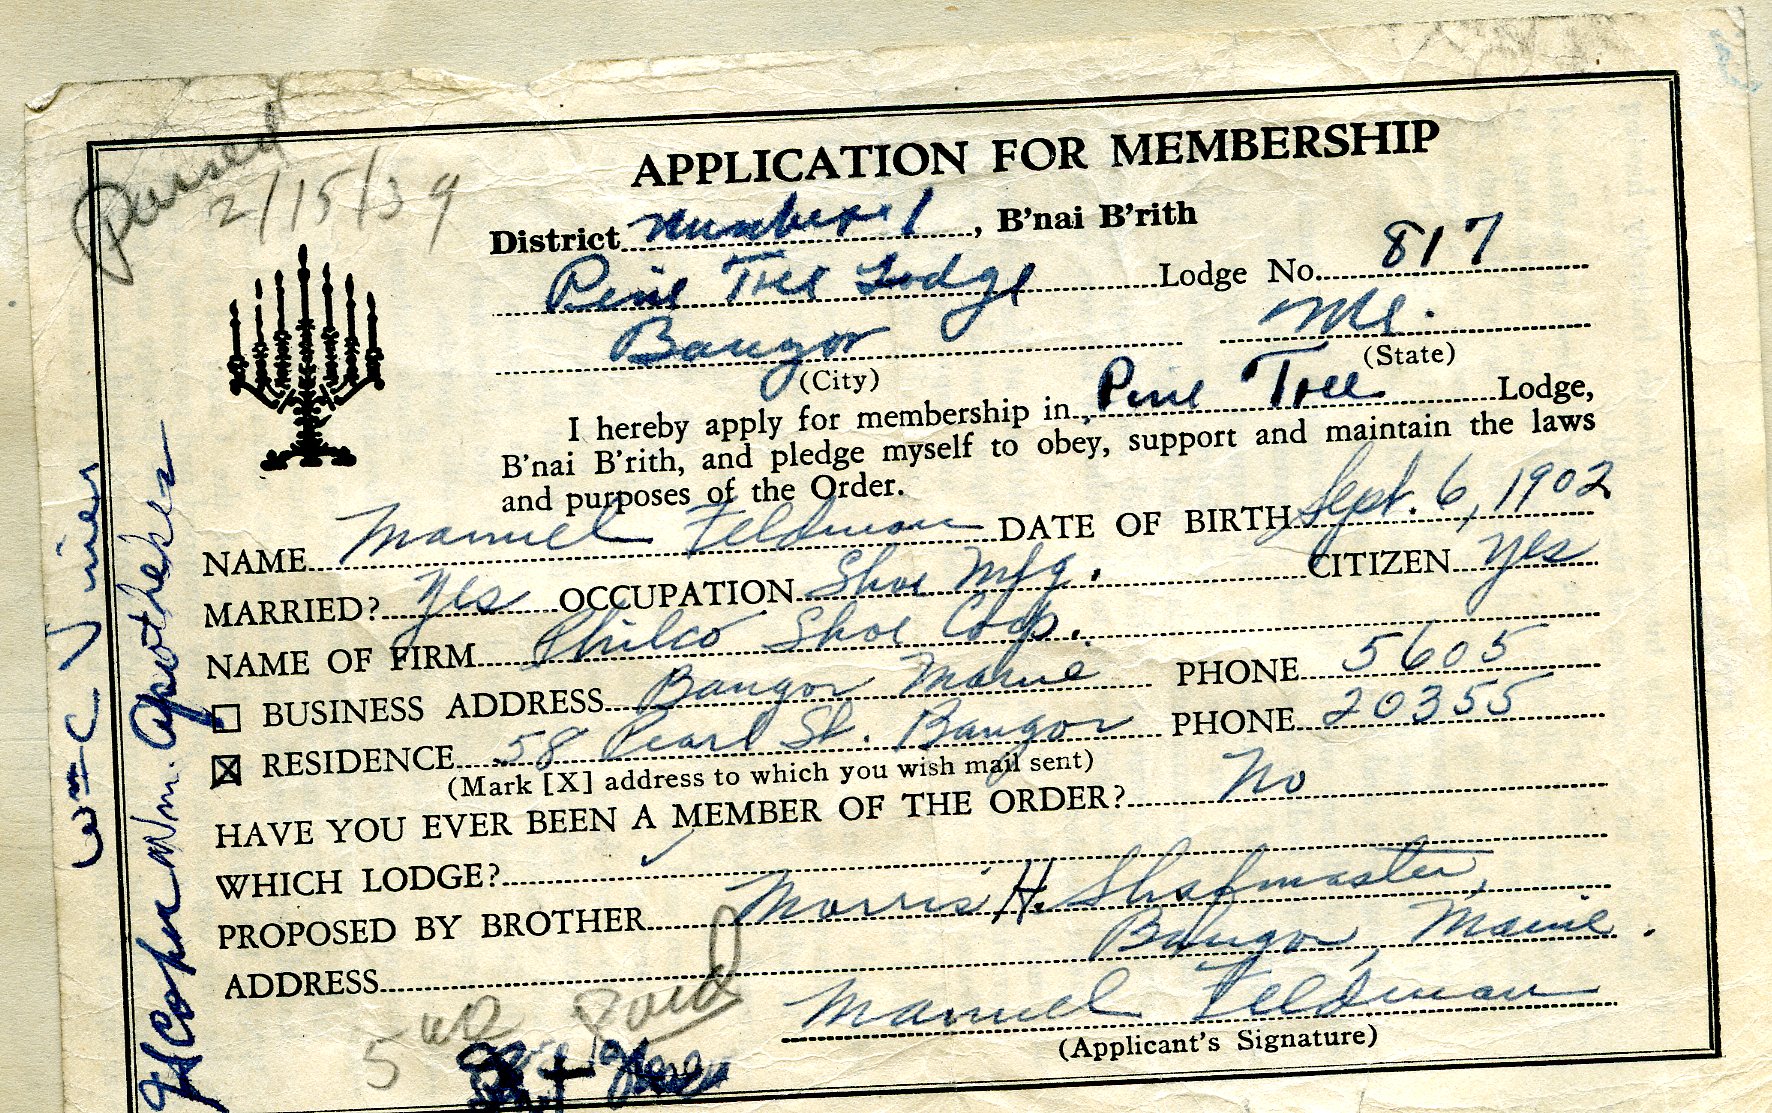 Passed
2/15/39
APPLICATION FOR MEMBERSHIP
District Number 1, B'nai B'rith
Pine Tree Lodge Lodge No. 817
Bangor Me.
(City) (State)
I hereby apply for membership in Pine Tree Lodge,
B'nai B'rith, and pledge myself to obey, support and maintain the laws
and purposes of the Order.
NAME Manuel Feldman DATE OF BIRTH Sept. 6, 1902
MARRIED? Yes OCCUPATION Shoe Mfg. CITIZEN Yes
NAME OF FIRM Philco Shoe Corp.
BUSINESS ADDRESS Bangor Maine PHONE 5605
RESIDENCE 58 Pearl St. Bangor PHONE 20355
(Mark [X] address to which you wish mail sent)
HAVE YOU EVER BEEN A MEMBER OF THE ORDER? No
WHICH LODGE?
PROPOSED BY BROTHER Morris H. Shafmaster,
ADDRESS Bangor, Maine.
5 00 Paid
Manuel Feldman
(Applicant's Signature)
Wm C Viner
Wm. Apotheker